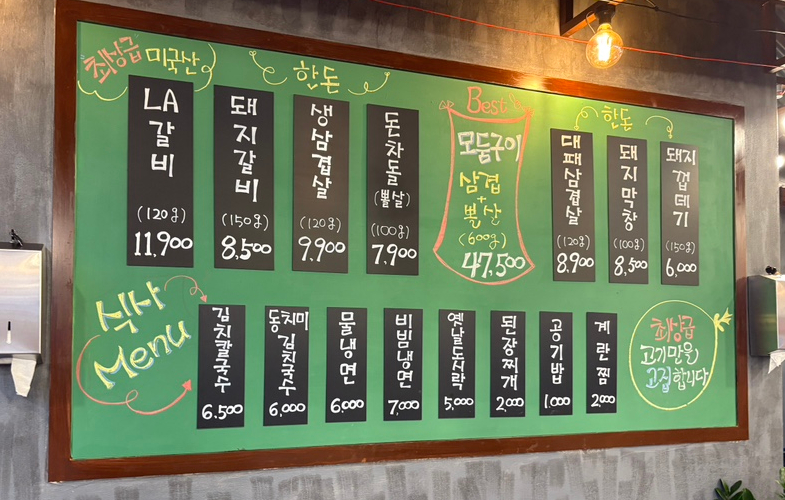 최상급 미국산
LA갈비
(120g)
11,900
한돈
돼지갈비
(150g)
8,500
생삼겹살
(120g)
9,900
돈차돌
(뽈살)
(100g)
7,900
Best
모듬구이
삼겹
+
뽈살
(600g)
47,500
한돈
대패삼겹살
(120g)
8,900
돼지막창
(100g)
8,500
돼지껍데기
(150g)
6,000
식사
Menu
김치칼국수
6,500
동치미김치국수
6,000
물냉면
6,000
비빔냉면
7,000
옛날도시락
5,000
된장찌개
2,000
공기밥
1,000
계란찜
2,000
최상급
고기만을
고집합니다